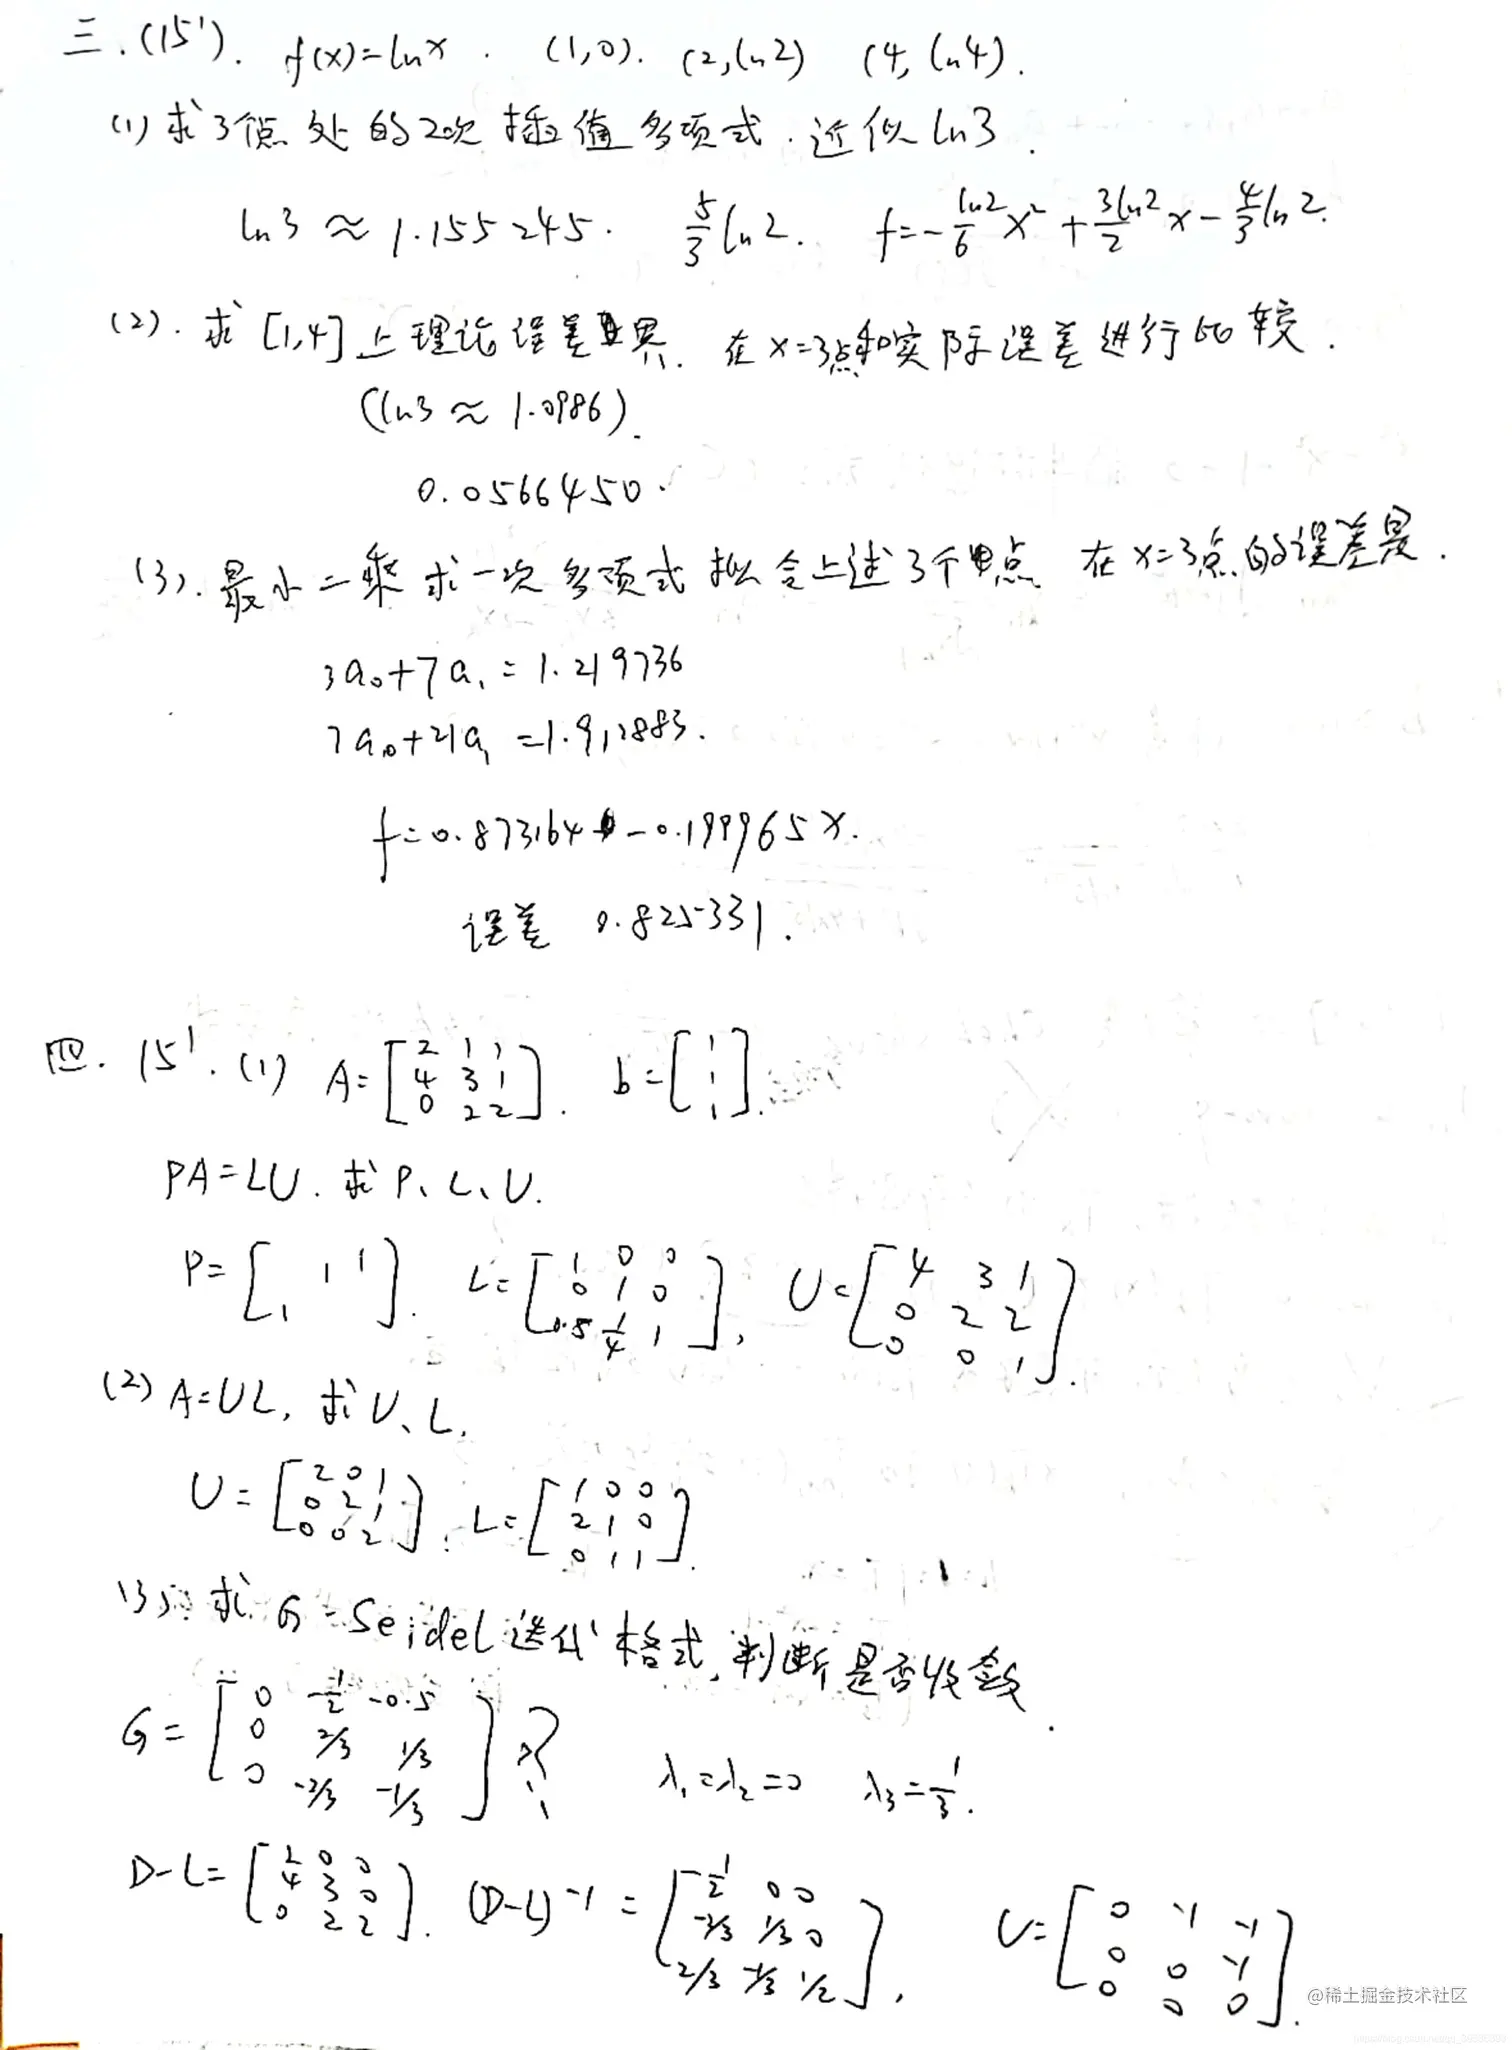 三.(15'). f(x)=lnx. (1,0). (2,ln2) (4,ln4).
(1) 求3个点处的2次插值多项式.近似ln3.
ln3≈1.155245. 5/3 ln2. f=-ln2/6 x²+3ln2/2 x-4/3 ln2.
(2). 求[1,4]上理论误差界. 在x=3点和实际误差进行比较.
(ln3≈1.0986).
0.0566450.
(3). 最小二乘求一次多项式拟合上述3个点 在x=3点的误差是.
3a₀+7a₁=1.219736
7a₀+21a₁=1.912883.
f=0.873164-0.199965x.
误差 0.825331.
四. 15'. (1) A=[2 1 1; 4 3 1; 0 2 2]. b=[1; 1; 1].
PA=LU. 求P、L、U.
P=[1 1 1]. L=[1 0 0; 0 1 0; 0.5 -1/4 1], U=[4 3 1; 0 2 2; 0 0 1].
(2) A=UL, 求U、L.
U=[2 0 1; 0 2 1; 0 0 2]. L=[1 0 0; 2 1 0; 0 1 1].
(3). 求G-Seidel迭代格式,判断是否收敛.
G=[0 -1/2 -0.5; 0 2/3 1/3; 0 -2/3 -1/3] ? λ₁=λ₂=0 λ₃=1/3.
D-L=[2 0 0; 4 3 0; 0 2 2]. (D-L)⁻¹=[1/2 0 0; -2/3 1/3 0; 2/3 -1/3 1/2], U=[0 -1 -1; 0 0 -1; 0 0 0].
@稀土掘金技术社区